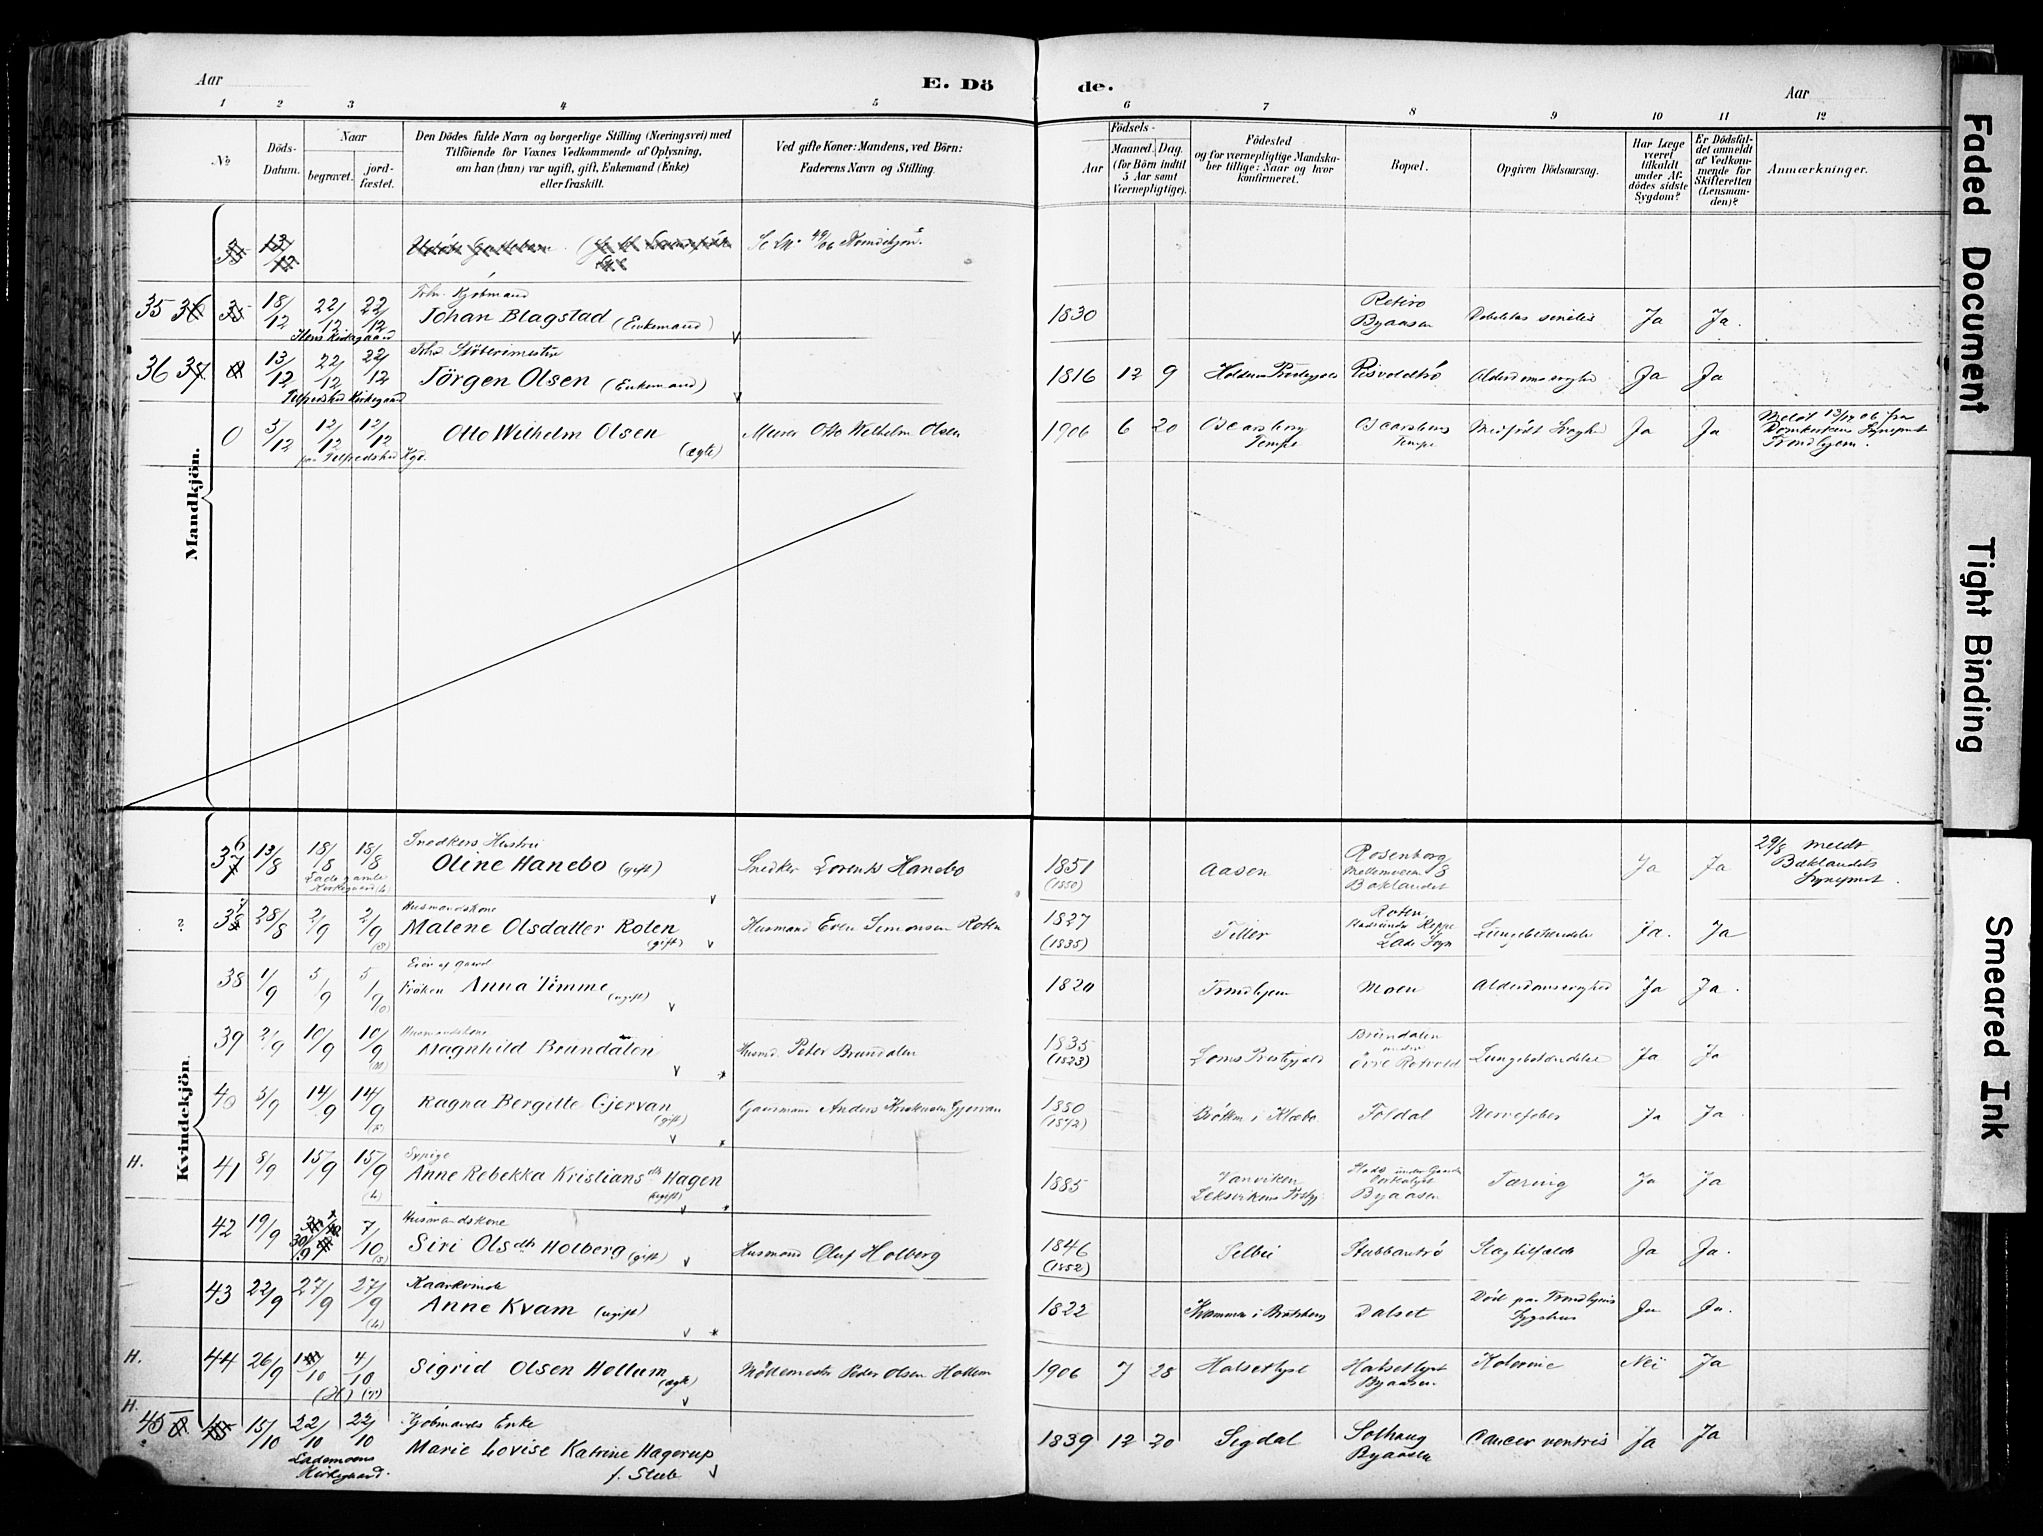 Aar
E. Dö
de.
Aar
1 2 3 4 5 6 7 8 9 10 11 12
No
Döds-
Datum.
Naar
begravet.
jord-
fæstet.
Den Dödes fulde Navn og borgerlige Stilling (Næringsvei) med
Tilföiende for Voxnes Vedkommende af Oplysning,
om han (hun) var ugift, gift, Enkemand (Enke)
eller fraskilt.
Ved gifte Koner: Mandens, ved Börn:
Faderens Navn og Stilling.
Födsels-
Aar
Maaned. Dag.
(for Börn indtil
5 Aar samt
Værnepligtige).
Födested
og for værnepligtige Mandska-
ber tillige: Naar og hvor
konfirmeret.
Bopæl.
Opgiven Dödsaarsag.
Har Læge
været
tilkaldt
under Af-
dödes sidste
Sygdom?
Er Dödsfal-
det anmeldt
af Vedkom-
mende for
Skifteretten
(Lensman-
den)?
Anmærkninger.
Mandkjön.
13/12
35 36 35 18/12 22/12 22/12
Johan Blagstad (Enkemand)
1830
Retiro
Byaasen
senilis
Ja Ja.
36 37 0 13/12 22/12 22/12
Jörgen Olsen (Enkemand)
1816 12 9
Alderdomssvaghed
Ja Ja
0 5/12 12/12 12/12
Otto Wilhelm Olsen
(ægte)
Murer Otto Wilhelm Olsen
1906 6 20
Oscarsborg
Tempe
Oscarsborg
Tempe
Medfödt Svaghed
Ja Ja
Meldt 13/12 06 fra
Domkirkens Sogneprest
Trondhjem.
Kvindekjön.
37 6 13/8 18/8 18/8
Lade gamle
Kirkegaard
Snedkers Hustru
Oline Hanebo (gift)
Snedker Lorents Hanebo
1851
(1850)
Aasen
Rosenborg
Mellemveien 8
Baklandet
Ja Ja
29/8 meldt
Baklandets
Sogneprest.
? 38 7 28/8 2/9 2/9
Husmandskone
Malene Olsdatter Roten
(gift)
Husmand Even Simonsen Roten
1827
(1835)
Tiller
Roten
Lade Sogn
Lungebetændelse
Ja. Ja
38 1/9 5/9 5/9
Eier af Gaard
Fröken Anna Timme
(ugift)
1820
Trondhjem
Moen
Alderdomssvaghed
Ja Ja.
39 2/9 10/9 10/9
Husmandskone
Magnhild Brundalen
Husmd. Peter Brundalen
1835
(1823)
Loms Prestegjeld
Brundalen
under
övre Rotvold
Lungebetændelse
Ja Ja
40 5/9 14/9 14/9
Ragna Bergitte Gjervan
(gift)
Gaardmand Anders Kristensen Gjervan
1880
(1872)
i Klæbo
Foldal
Nervefeber
Ja Ja
H. 41 8/9 15/9 15/9
Sypige
Anne Rebekka Kristiansdtr Hagen
(ugift)
1885
Vanviken
Leksvikens Prstgj.
Byaasen
Tæring
Ja Ja
42 19/9 30/9 7/10
Husmandskone
Siri Olsdtr Holberg (gift)
Husmand Oluf Holberg
1846
(1852)
Selbu
Stubbantrö
Slagtilfælde
Ja Ja.
43 22/9 27/9 27/9
Kaarkvinde
Anne Kvam (ugift)
1822
i Bratsberg
Dalset
Död paa Trondhjems
Sygehus
Ja Ja.
H. 44 26/9 /10 4/10
Sigrid Olsen Hollum
(ægte)
Möllemester Peder Olsen Hollum
1906 7 28
Halsetlyst
Halsetlyst
Byaasen.
Kolerine
Nei Ja
H.
45 0 45 15/10 22/10 22/10
Lademoens
Kirkegaard.
Kjöbmands Enke
Marie Lovise Katrine Hagerup
f. Steb
1839 12 20
Sigdal
Solhaug
Byaasen
Cancer ventris
Ja Ja
Faded Document
Tight Binding
Smeared Ink